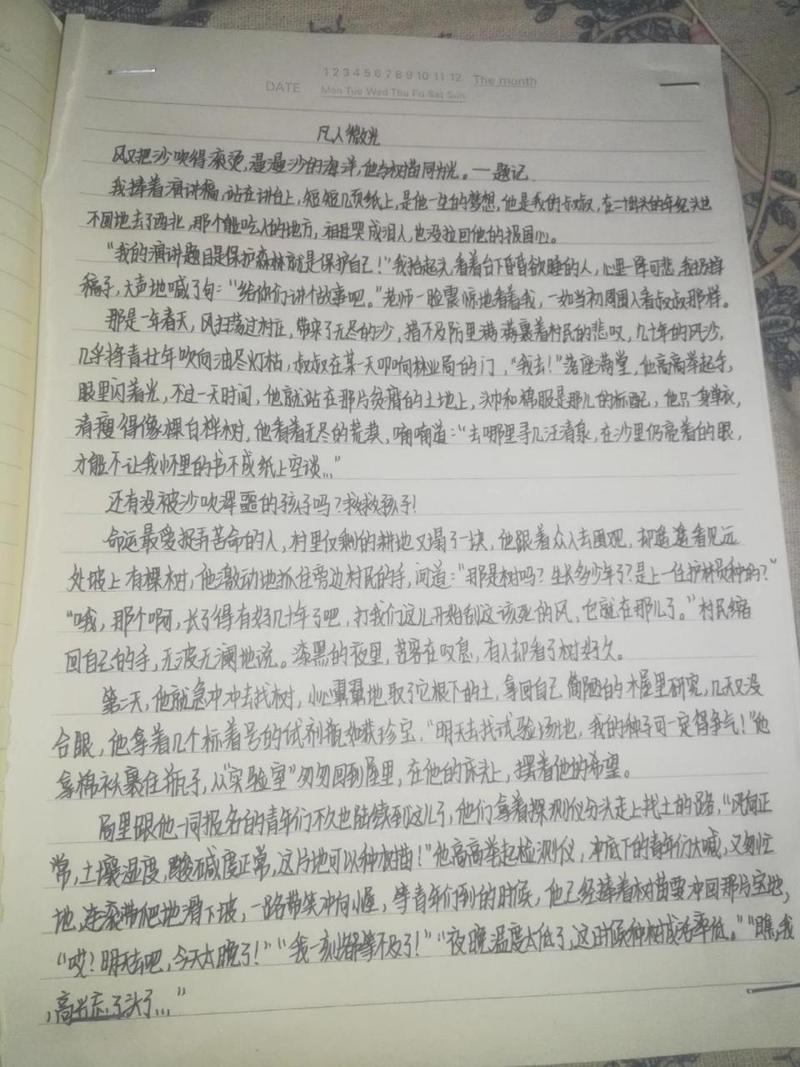 DATE 1 2 3 4 5 6 7 8 9 10 11 12 The month
Mon Tue Wed Thu Fri Sat Sun
凡人微光
风又把沙吹得滚烫，漫漫沙的海洋，他与树苗同光。——题记
我捧着演讲稿，站在讲台上，短短几页纸上，是他一生的梦想，他是我的叔叔，在二十出头的年纪头也
不回地去了西北，那个能吃人的地方，祖母哭成泪人，也没拉回他的报国心。
“我的演讲题目是保护森林就是保护自己！”我抬起头，看着台下昏昏欲睡的人，心里一阵可悲，我扔掉
稿子，大声地喊了句：“给你们讲个故事吧。”老师一脸震惊地看着我，一如当初周围人看叔叔那样。
那是一年春天，风扫荡过村庄，带来了无尽的沙，指不及防里满满裹着村民的悲叹，几十年的风沙，
几乎将青壮年吹向油尽灯枯，叔叔在某天叩响林业局的门，“我去！”落座满堂，他高高举起手，
眼里闪着光，不过一天时间，他就站在那片贫瘠的土地上，头巾和棉服是那儿的标配，他只一身单衣，
清瘦得像棵白桦树，他看着无尽的荒漠，喃喃道：“去哪里寻几汪清泉，在沙里仍亮着的眼，
才能不让我怀里的书不成纸上空谈...”
还有没被沙吹浑噩的孩子吗？救救孩子！
命运最爱捉弄苦命的人，村里仅剩的耕地又塌了一块，他跟着众人去围观，却遥遥看见远
处坡上有棵树，他激动地抓住旁边村民的手，问道：“那是树吗？生长多少年了？是上一任护林员种的？”
“哦，那个啊，长了得有好几十年了吧，打我们这儿开始刮这该死的风，它就在那儿了。”村民缩
回自己的手，无波无澜地说。漆黑的夜里，苦客在叹息，有人却看了树好久。
第二天，他就急冲冲去找树，小心翼翼地取了它根下的土，拿回自己简陋的木屋里研究，几天又没
合眼，他拿着几个标着号的试剂瓶如获珍宝，“明天去找试验场地，我的种子可一定得争气！”他
拿棉袄裹住瓶子，从“实验室”匆匆回到屋里，在他的床头上，摆着他的希望。
局里跟他一同报名的青年们不久也陆续到这儿了，他们拿着探测仪分头走上找土的路，“风向正
常，土壤湿度，酸碱度正常，这片地可以种树苗！”他高高举起检测仪，冲底下的青年们大喊，又匆忙
地，连滚带爬地滑下坡，一路带笑冲向小屋，等青年们到的时候，他已经捧着树苗要冲回那片宝地，
“哎？明天去吧，今天太晚了！”“我一刻都等不及了！”“夜晚温度太低了，这时候种树成活率低。”“瞧，我
，高兴忘了头了...”